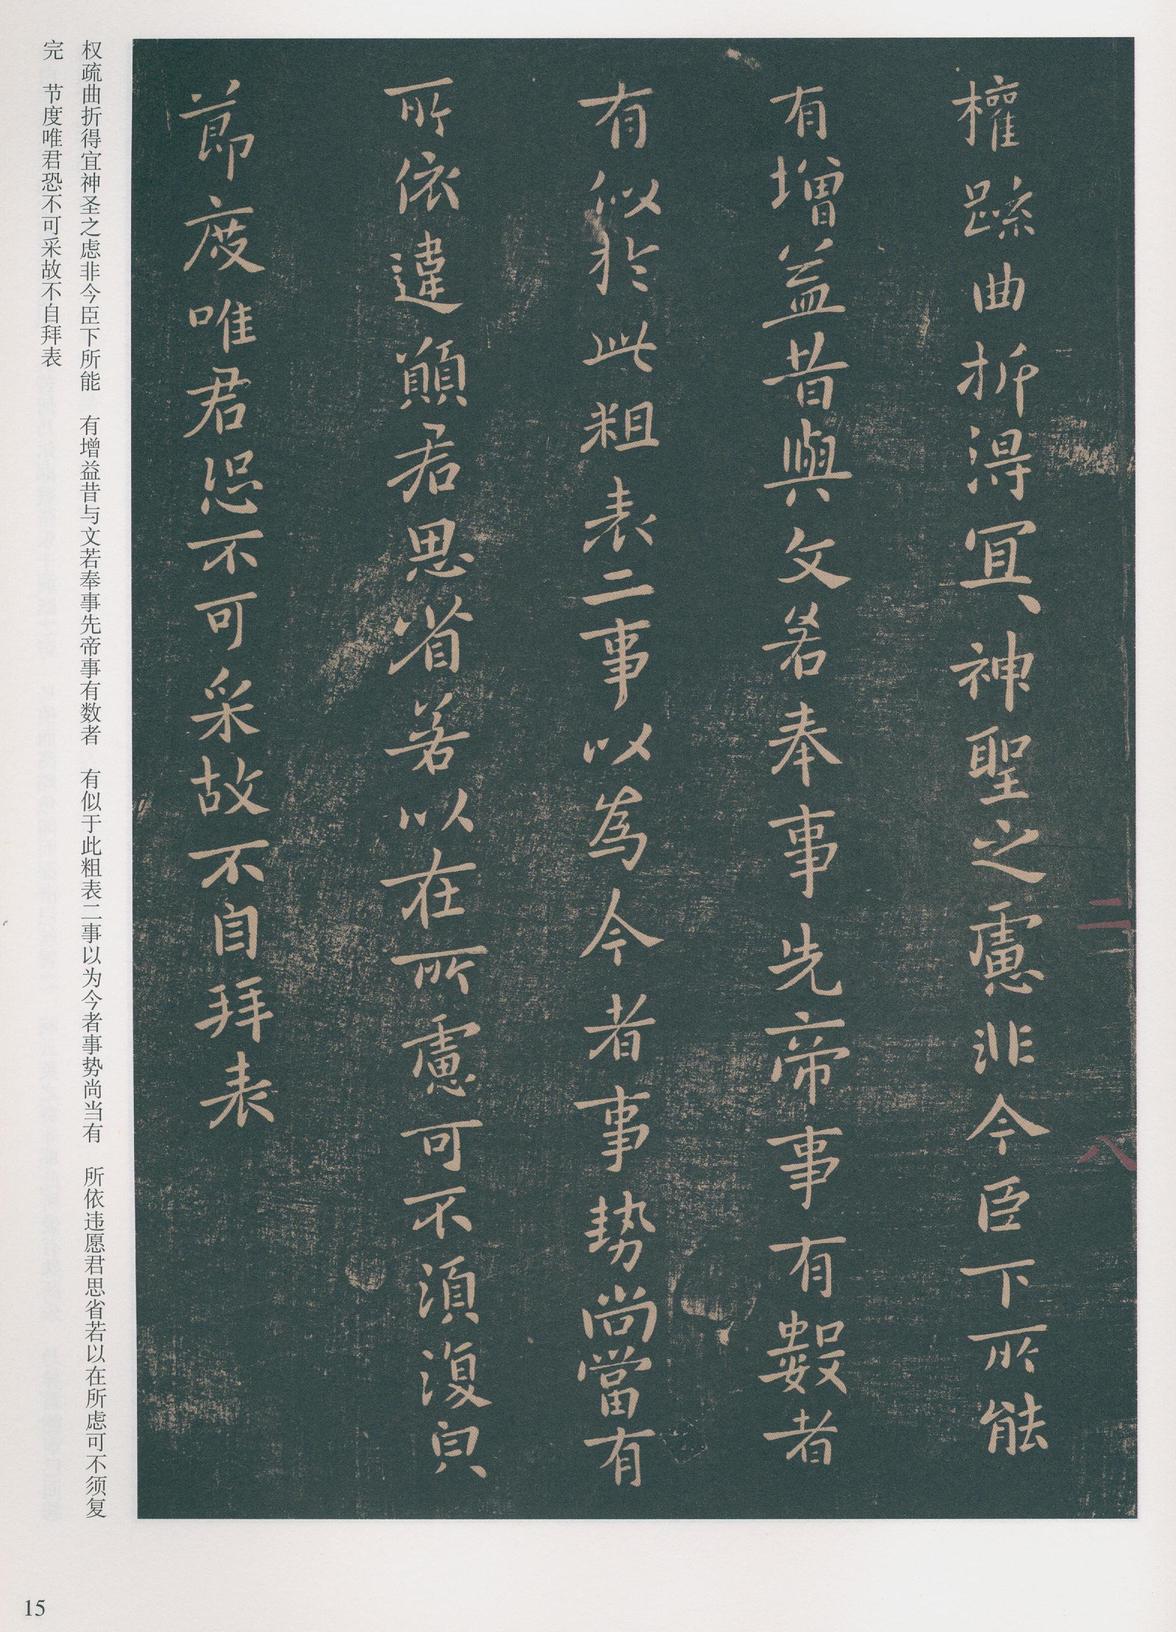 權疏曲折得宜神聖之慮非今臣下所能
有增益昔與文若奉事先帝事有數者
有似於此粗表二事以為今者事勢尚當有
所依違願君思省若以在所慮可不須復皃
節度唯君恐不可采故不自拜表
二
八
权疏曲折得宜神圣之虑非今臣下所能　有增益昔与文若奉事先帝事有数者　有似于此粗表二事以为今者事势尚当有　所依违愿君思省若以在所虑可不须复
完　节度唯君恐不可采故不自拜表
15